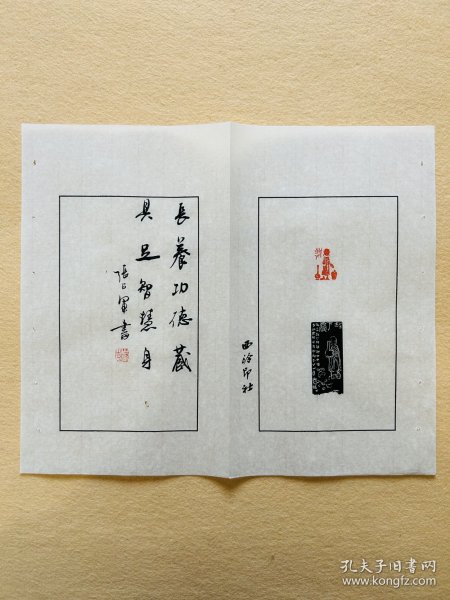 長養功德藏
具足智慧身
書
西泠印社
孔夫子旧书网
www.kongfz.com